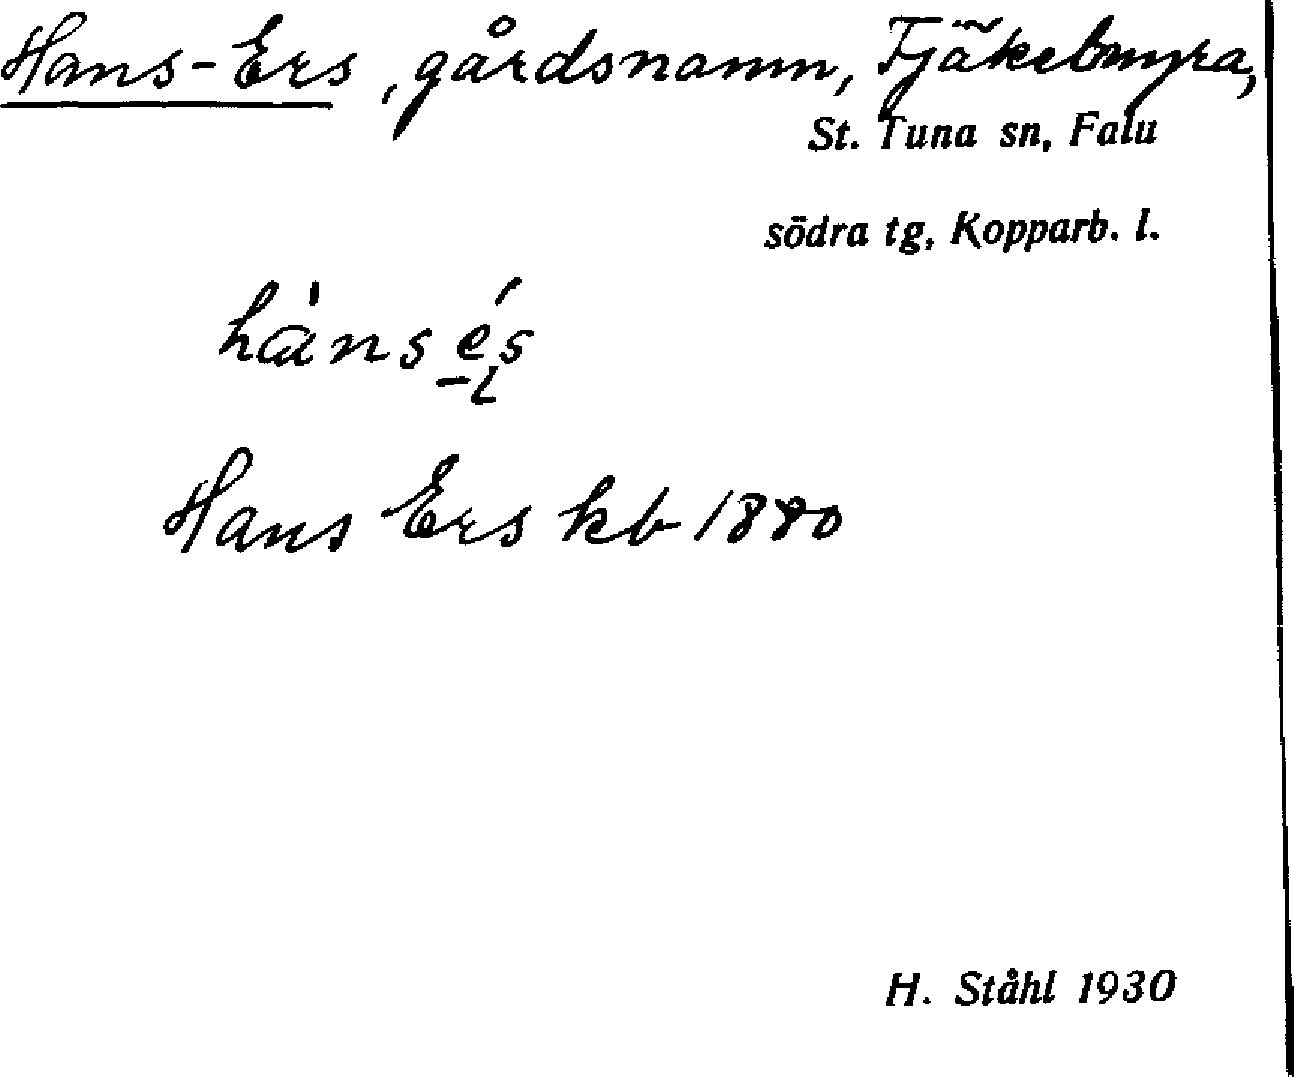 Hans-Ers, gårdsnamn, Fjäkelmyra,
St. Tuna sn, Falu
södra tg, Kopparb. l.
hàns és
Hans Ers kb 1880
H. Ståhl 1930